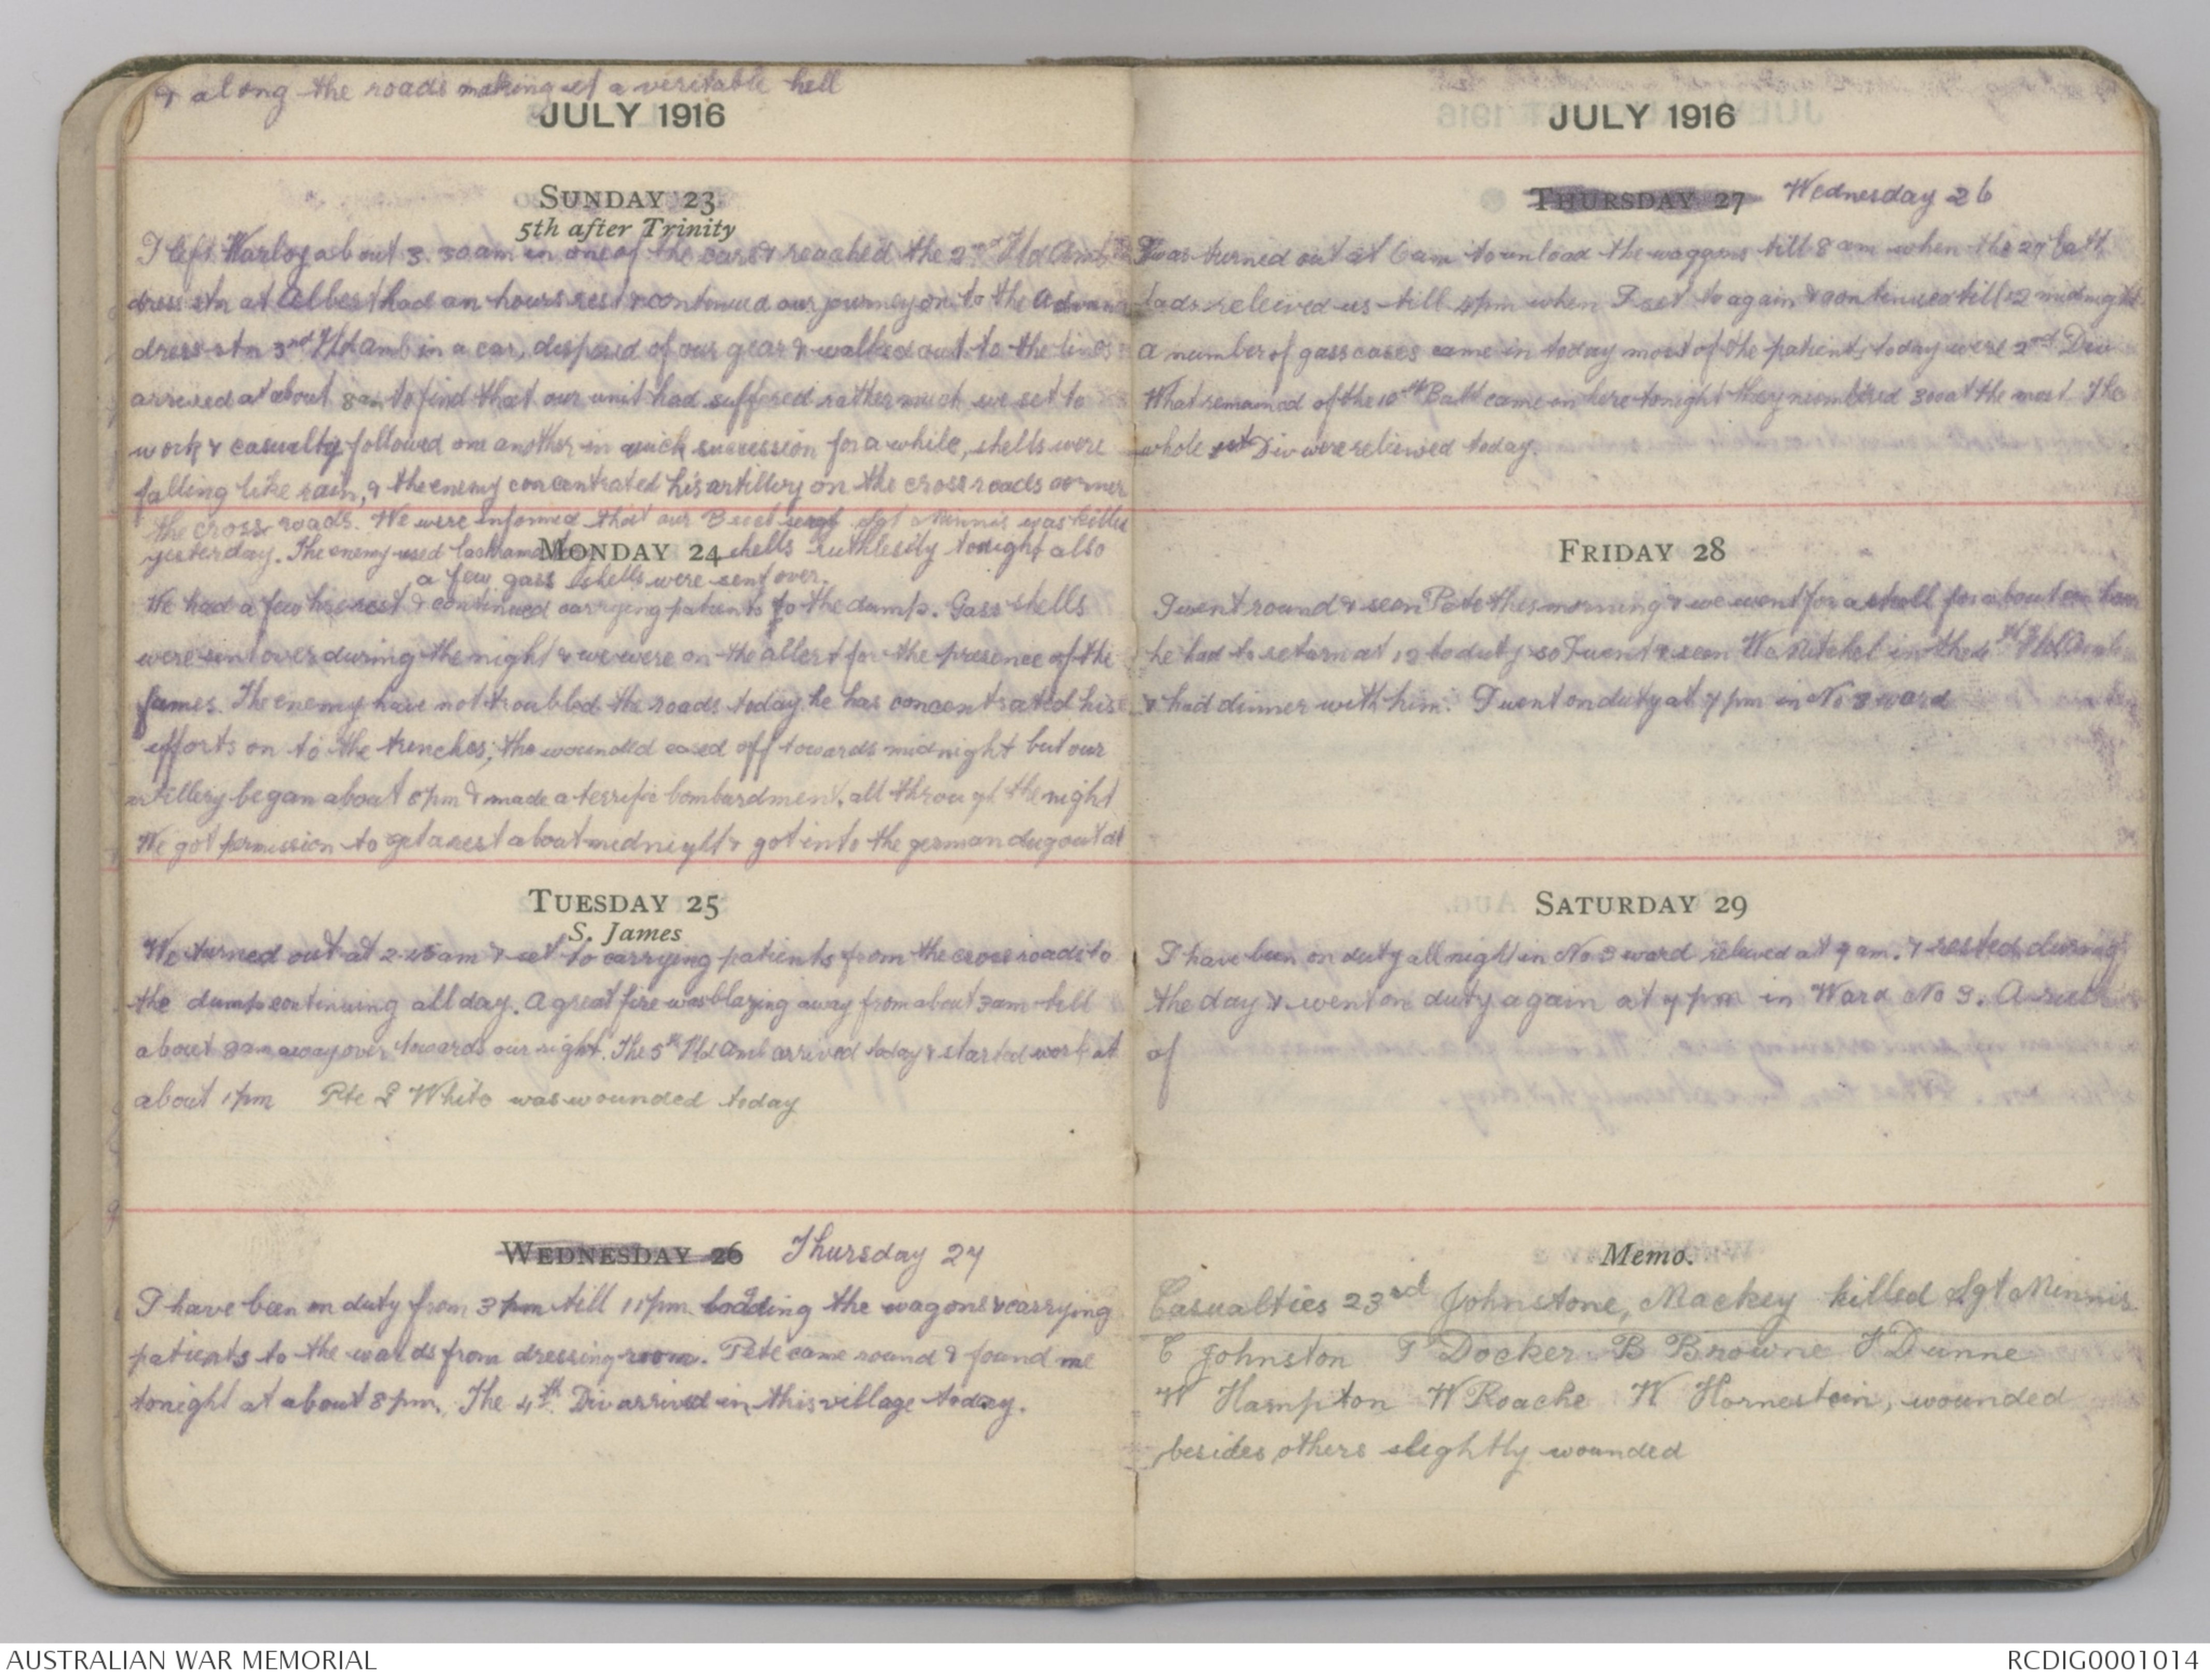 & along the roads making it a veritable hell
JULY 1916
SUNDAY 23
5th after Trinity
I left Warloy about 3.30am in one of the cars & reached the 2nd Fld Amb
dress stn at Albert had an hours rest & continued our journey on to the Advan
dress stn 3rd Fld Amb in a car, disposed of our gear & walked out to the lines
arrived at about 8am to find that our unit had suffered rather much we set to
work & casualty followed one another in quick succession for a while, shells were
falling like rain, & the enemy concentrated his artillery on the cross roads corner
the cross roads. We were informed that our Sgt Minnis was killed
yesterday. The enemy used shells ruthlessly tonight also
MONDAY 24
a few gass shells were sent over.
We had a few hrs rest & continued carrying patients to the dump. Gass shells
were sent over during the night & we were on the allert for the presence of the
fumes. The enemy have not troubled the roads today he has concentrated his
efforts on to the trenches; the wounded eased off towards midnight but our
artillery began about 8pm & made a terrific bombardment, all through the night
We got permission to get a rest about midnight & got into the german dugout at
TUESDAY 25
S. James
We turned out at 2.15am & set to carrying patients from the cross roads to
the dump continuing all day. A great fire was blazing away from about 3am till
about 8am away over towards our right. The 5th Fld Amb arrived today & started work at
about 1pm Pte L White was wounded today
WEDNESDAY 26 Thursday 27
I have been on duty from 3pm till 11pm loading the wagons & carrying
patients to the wards from dressing room. Pete came round & found me
tonight at about 8pm. The 4th Div arrived in this village today.
JULY 1916
THURSDAY 27 Wednesday 26
I was turned out at 6am to unload the waggons till 8am when the 27 batt
lads releived us till 4pm when I set to again & continued till 12 midnight
A number of gass cases came in today most of the patients today were 2nd Div
What remained of the 10th Batt came in here tonight they numbered 300 at the most. The
whole 1st Div were releived today.
FRIDAY 28
I went round & seen Pete this morning & we went for a stroll for about an hour
he had to return at 12 to duty so I went & seen in the 4th Fld Amb
& had dinner with him. I went on duty at 7pm in No 3 ward
SATURDAY 29
I have been on duty all night in No 3 ward releived at 7am. & rested during
the day & went on duty again at 7pm in Ward No 3. A
of
Memo.
Casualties 23rd Johnstone, Mackey killed Sgt Minnis
C Johnston T Docker B Browne F Dunne
W Hampton W Roache W Hornestein, wounded
besides others slightly wounded
AUSTRALIAN WAR MEMORIAL
RCDIG0001014